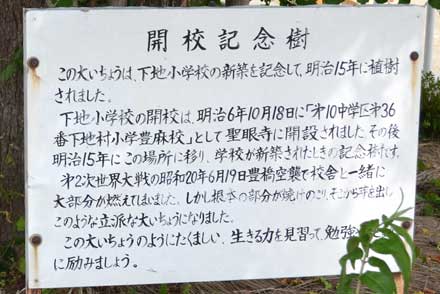 開校記念樹
この大いちょうは、下地小学校の新築を記念して、明治15年に植樹
されました。
下地小学校の開校は、明治6年10月18日に「第10中学区第36
番下地村小学豊麻校」として聖眼寺に開設されました。その後
明治15年にこの場所に移り、学校が新築されたときの記念樹です。
第2次世界大戦の昭和20年6月19日豊橋空襲で校舎と一緒に
大部分が燃えてしまいました。しかし根本の部分が焼けのこり、そこから芽を出し
このような立派な大いちょうになりました。
この大いちょうのようにたくましい、生きる力を見習って、勉強
に励みましょう。